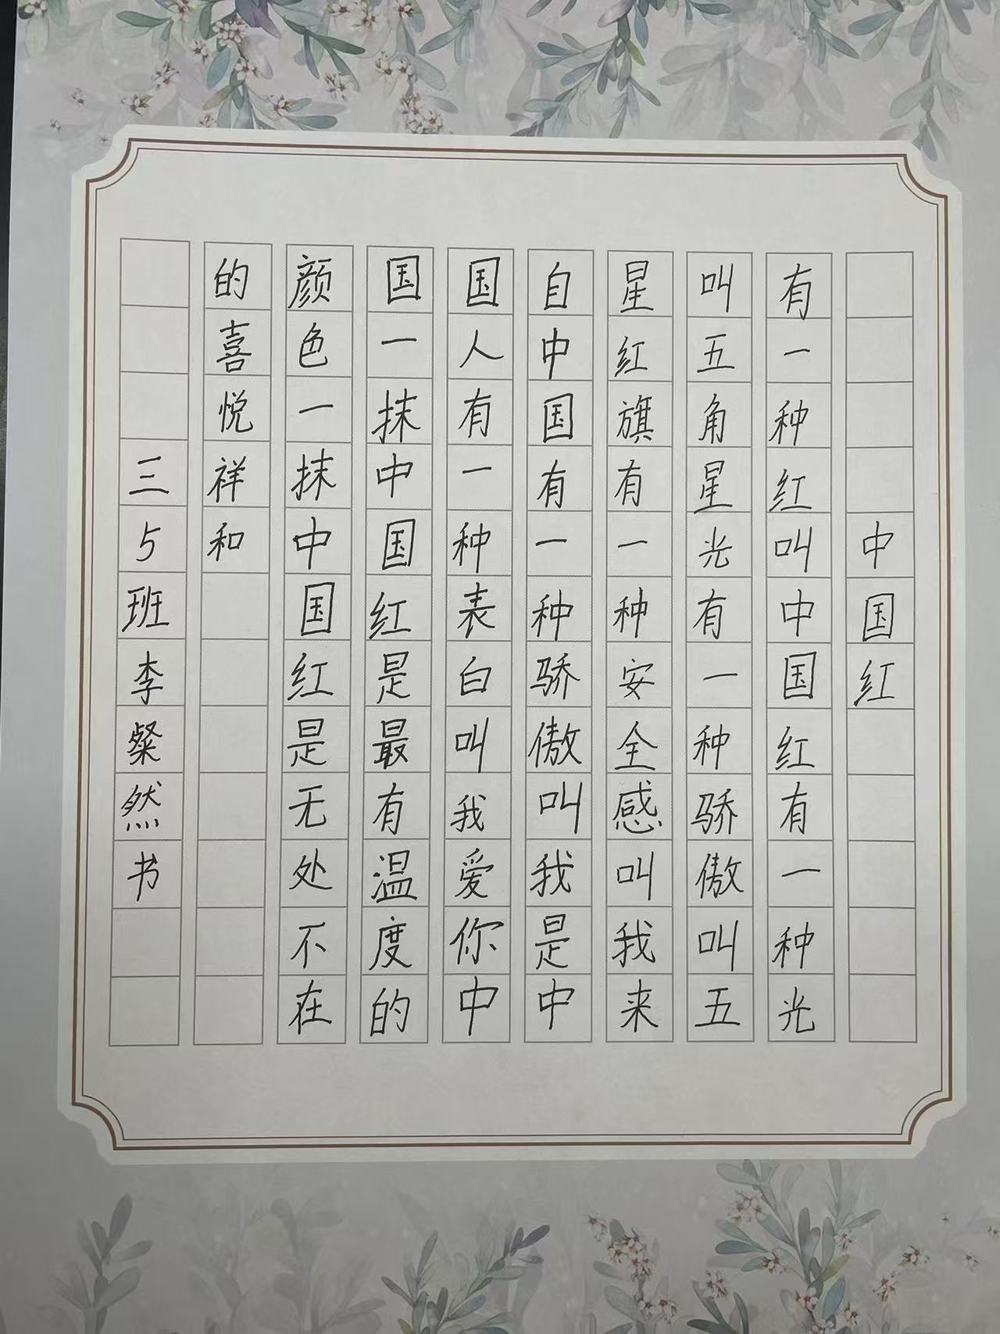 中国红
有一种红叫中国红有一种光
叫五角星光有一种骄傲叫五
星红旗有一种安全感叫我来
自中国有一种骄傲叫我是中
国人有一种表白叫我爱你中
国一抹中国红是最有温度的
颜色一抹中国红是无处不在
的喜悦祥和
三5班李粲然书